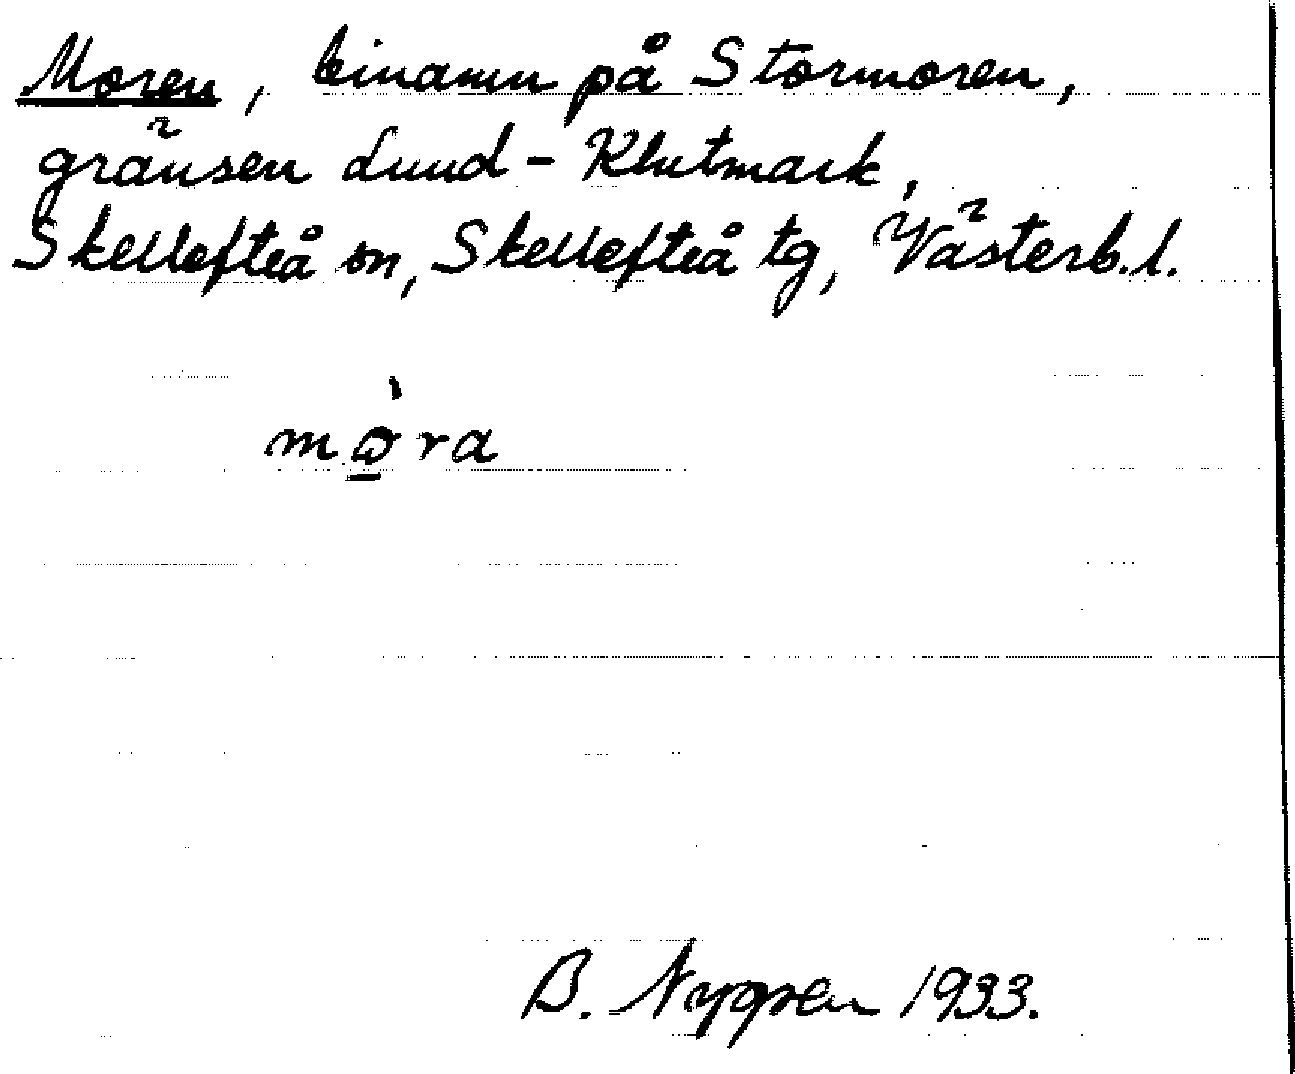 Moren, binamn på Stormoren,
gränsen Lund - Klutmark,
Skellefteå sn, Skellefteå tg, Västerb. l.
mò̠ra
B. Nygren 1933.